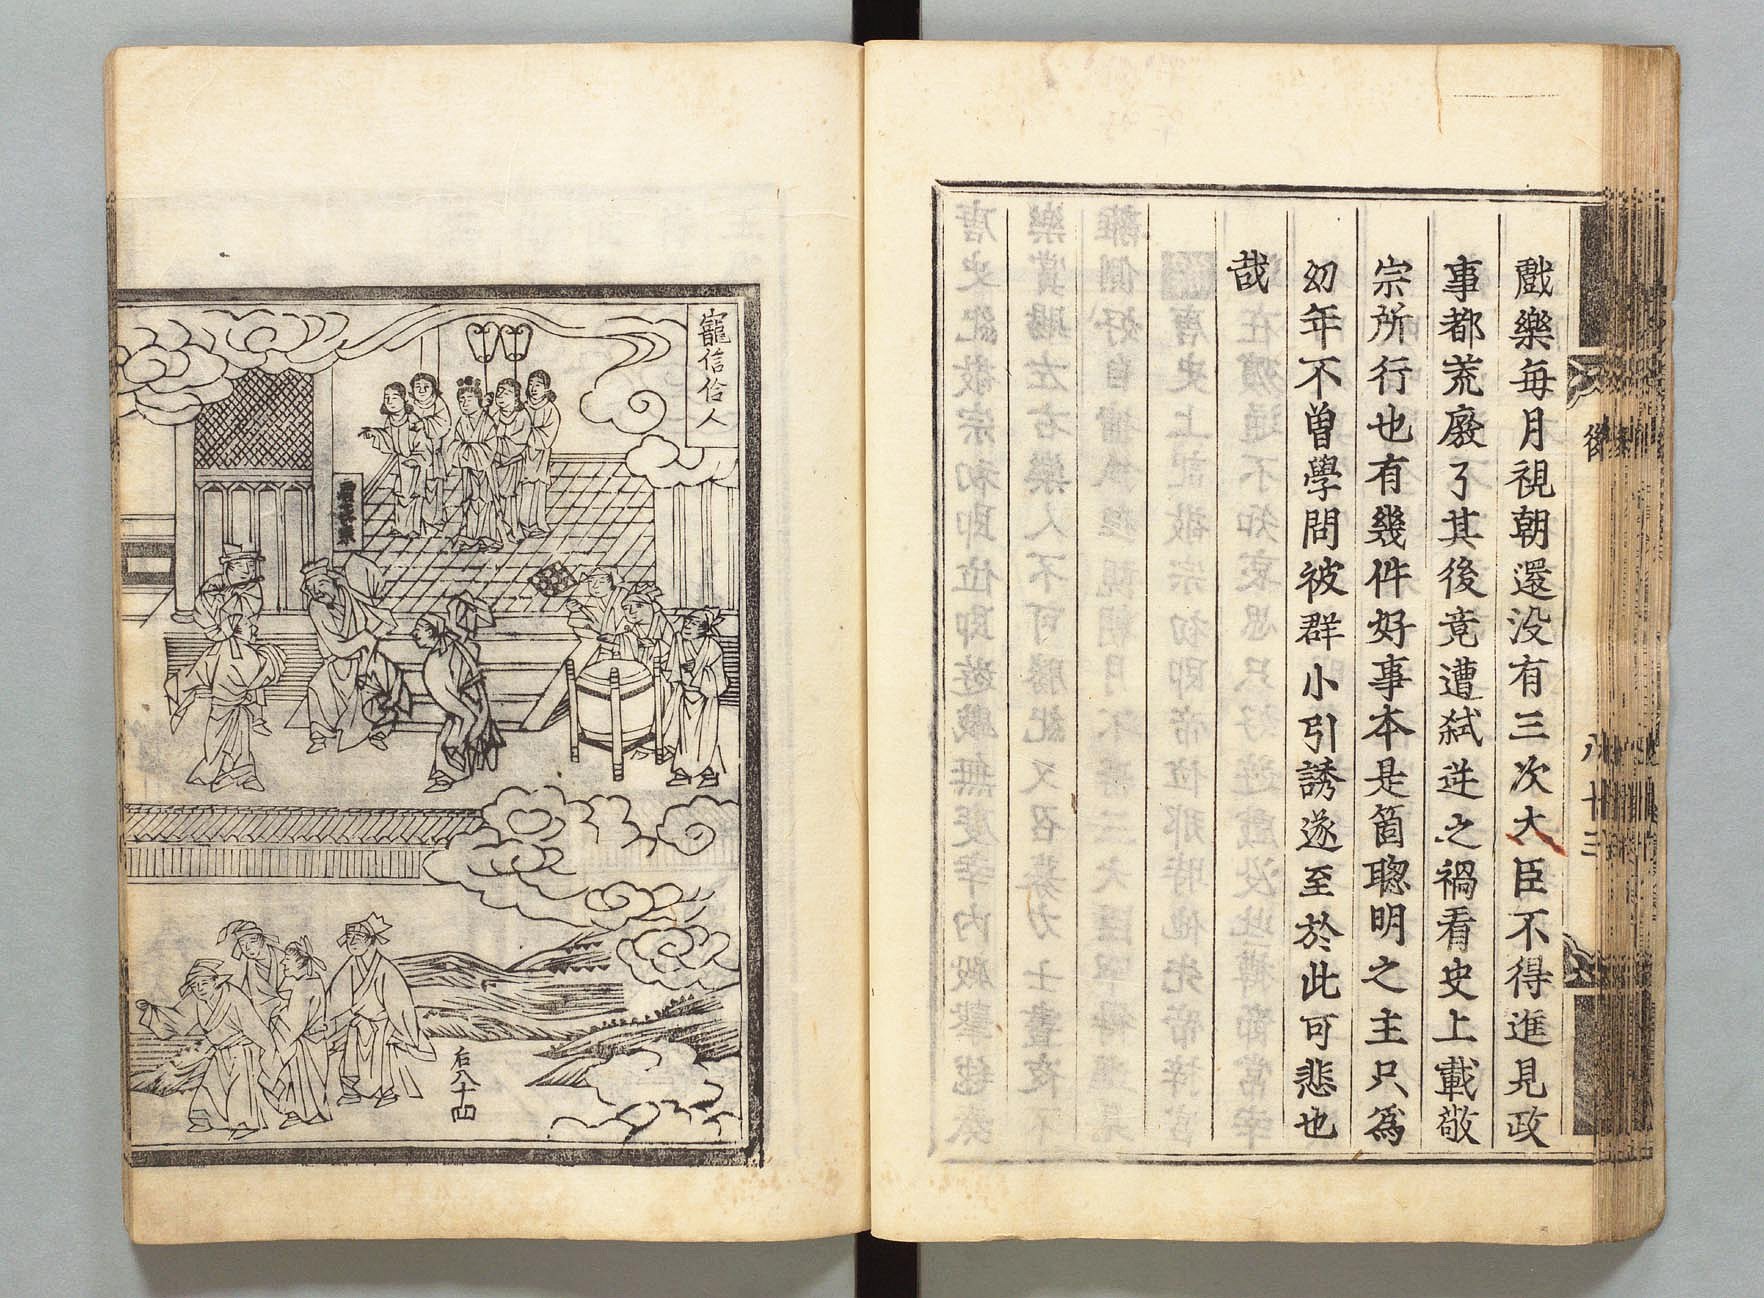 戲樂每月視朝還没有三次大臣不得進見政
事都荒廢了其後竟遭弑逆之禍看史上載敬
宗所行也有幾件好事本是箇聰明之主只爲
幼年不曾學問被群小引誘遂至於此可悲也
哉
後
八十三
寵信伶人
后八十四